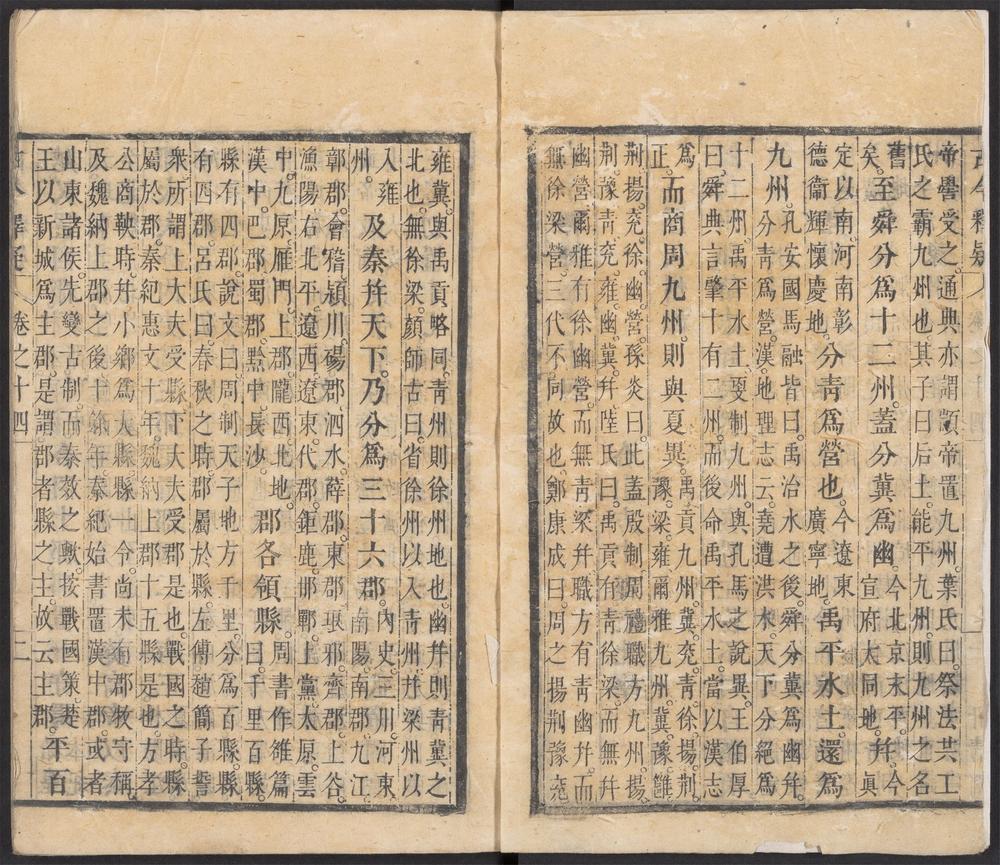 帝嚳受之。通典亦謂顓帝置九州。葉氏曰。祭法共工
氏之霸九州也。其子曰后土。能平九州。則九州之名
舊
矣。至舜分爲十二州。蓋分冀爲幽。今北京末平。
宣府大同地。并。今
眞
定以南。河南彰
德衞輝懷慶地。分青爲營也。今遼東
廣寧地。禹平水土。還爲
九州。孔安國馬融皆曰。禹治水之後。舜分冀爲幽并。
分青爲營。漢地理志云。堯遭洪水。天下分絕爲
十二州。禹平水土。更制九州。與孔馬之說異。王伯厚
曰。舜典言肇十有二州。而後命禹平水土。當以漢志
爲
正。而商周九州。則與夏異。禹貢九州。冀。兗青徐。揚。荆。
豫。梁。雍。爾雅九州。冀。豫。雝
荆。揚。兗。徐。幽。營。孫炎曰。此蓋殷制。周禮職方九州。揚
荆。豫。青。兗。雍。幽。冀。并。陸氏曰。禹貢有青徐梁。而無并
幽營。爾雅有徐幽營。而無青梁并。職方有青幽并。而
無徐梁營。三代不同故也。鄭康成曰。周之揚荆豫兗
雍冀。與禹貢略同。青州則徐州地也。幽并則青冀之
北也。無徐梁。顏師古曰。省徐州以入青州。并梁州以
入雍
州。及秦并天下。乃分爲三十六郡。內史。三川。河東
南陽。南郡。九江
鄣郡。會稽。潁川。碭郡。泗水。薛郡。東郡。琅邪。齊郡。上谷
漁陽。右北平。遼西。遼東。代郡。鉅鹿。邯鄲。上黨。太原。雲
中。九原。雁門。上郡。隴西。北地。
漢中。巴郡。蜀郡。黔中。長沙。郡各領縣。周書作雒篇
曰。千里百縣。
縣有四郡。說文曰。周制天子地方千里。分爲百縣。縣
有四郡。呂氏曰。春秋之時。郡屬於縣。左傳趙簡子誓
衆。所謂上大夫受縣。下大夫受郡是也。戰國之時。縣
屬於郡。秦紀惠文十年。魏納上郡十五縣是也。方孝
公商鞅時。并小鄉爲大縣。縣一令。尚未有郡牧守稱。
及魏納上郡之後十餘年。秦紀始書置漢中郡。或者
山東諸侯。先變古制。而秦效之歟。按戰國策。楚
王以新城爲主郡。是謂郡者縣之主。故云主郡。平百
卷之十四
二